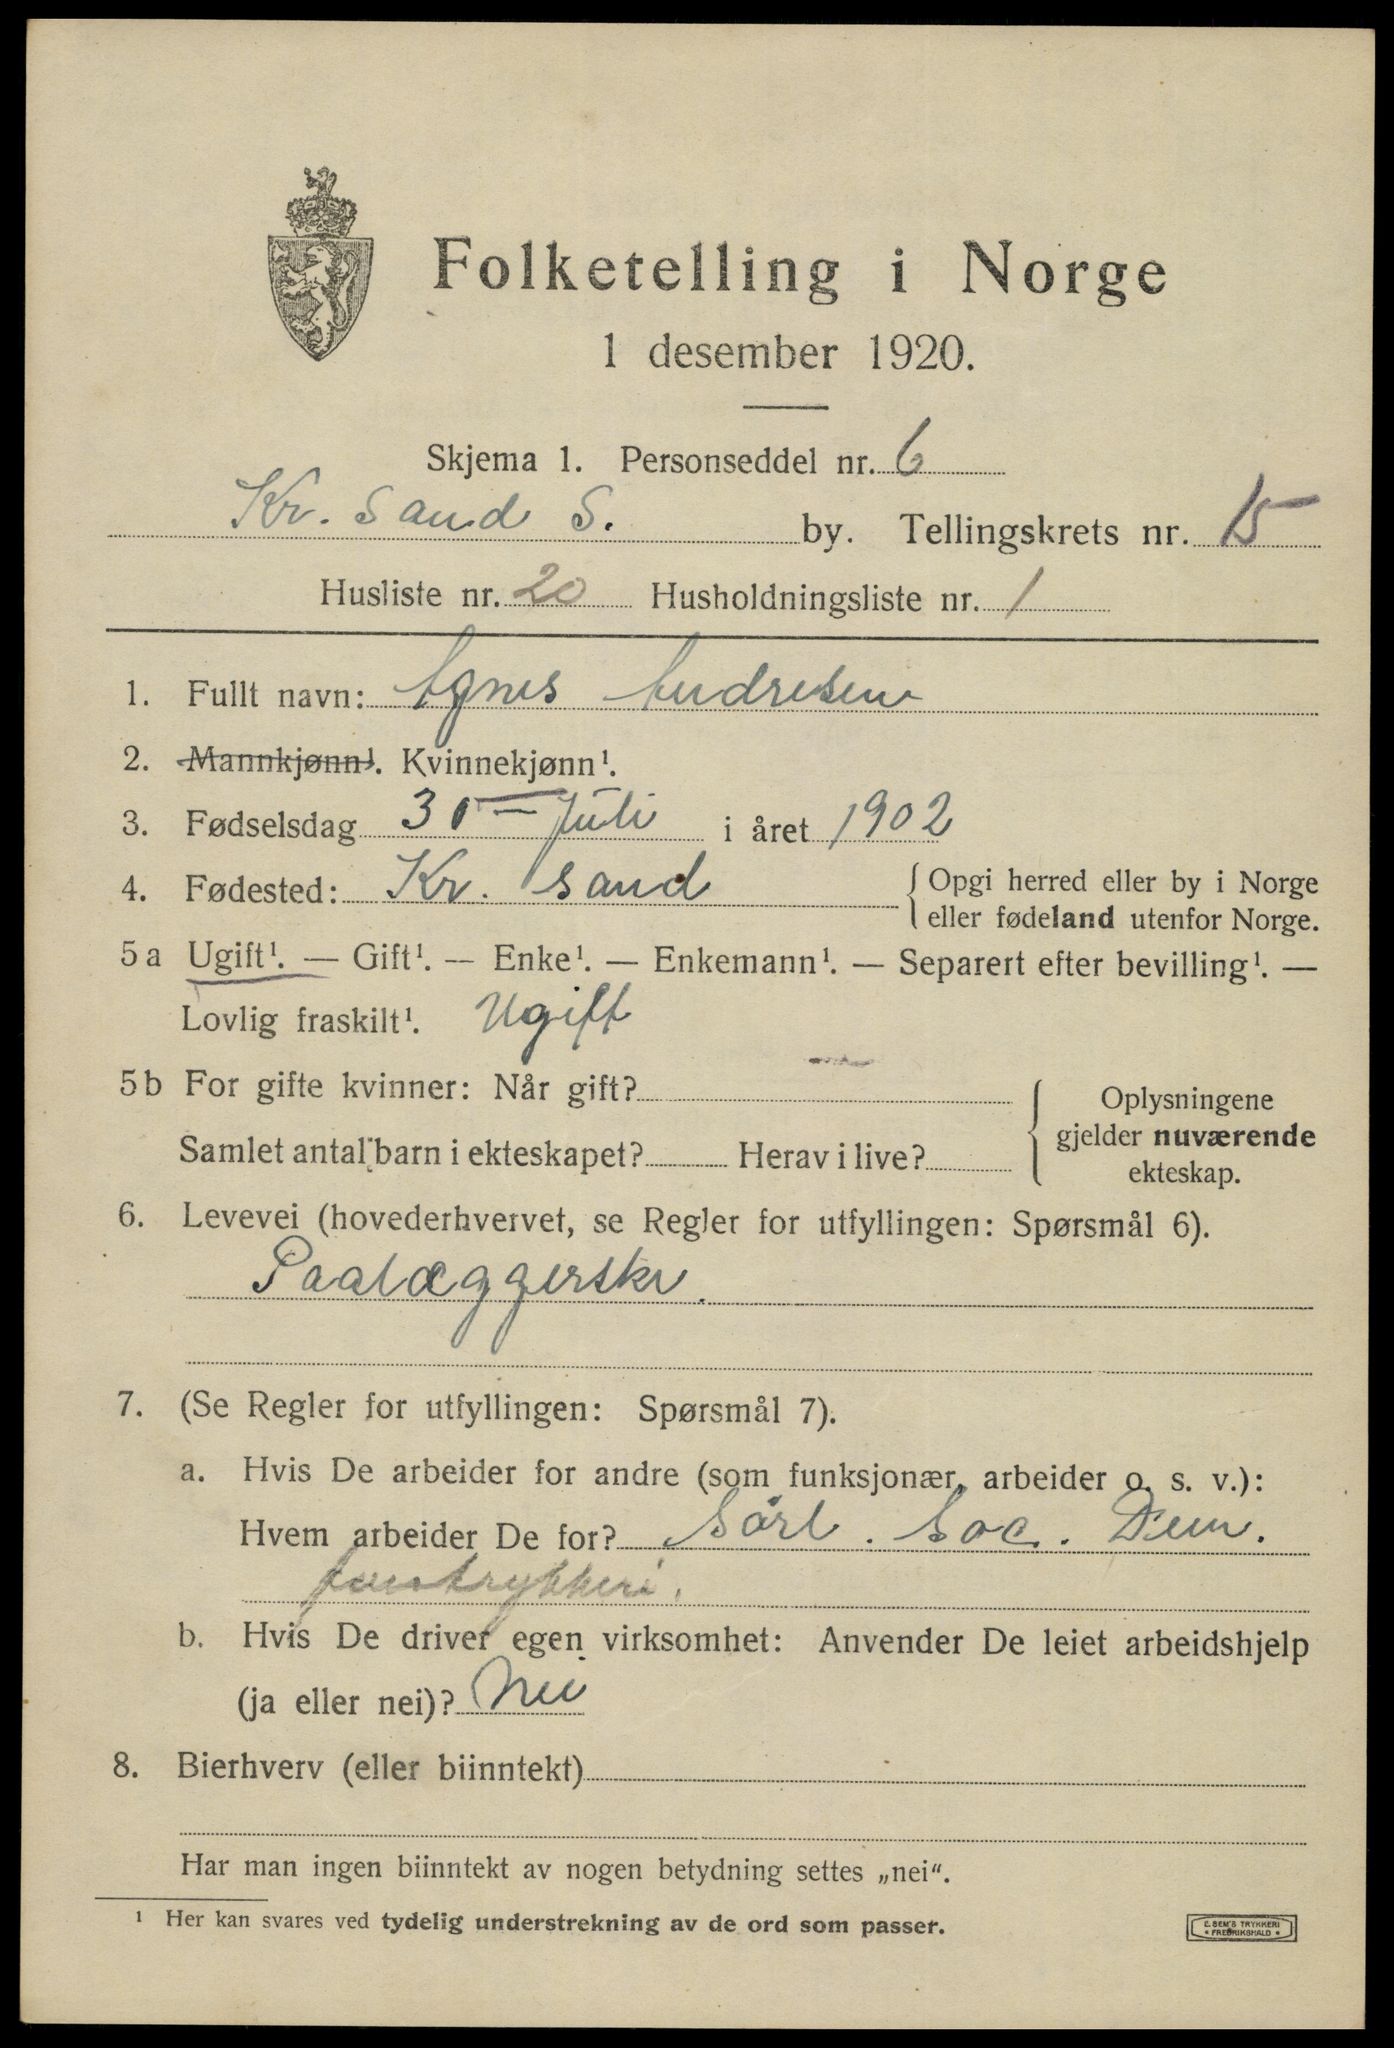 Folketelling i Norge
1 desember 1920.
Skjema 1. Personseddel nr. 6
Kr. sand S. by. Tellingskrets nr. 15
Husliste nr. 20 Husholdningsliste nr. 1
1. Fullt navn: Agnes Andresen
2. Mannkjønn¹. Kvinnekjønn¹.
3. Fødselsdag 30 – Juli i året 1902
4. Fødested: Kr. sand { Opgi herred eller by i Norge
eller fødeland utenfor Norge.
5 a Ugift¹. — Gift¹. — Enke¹. — Enkemann¹. — Separert efter bevilling¹. —
Lovlig fraskilt¹. Ugift
5 b For gifte kvinner: Når gift?
Samlet antal barn i ekteskapet? Herav i live?
{ Oplysningene
gjelder nuværende
ekteskap.
6. Levevei (hovederhvervet, se Regler for utfyllingen: Spørsmål 6).
Paalæggerske.
7. (Se Regler for utfyllingen: Spørsmål 7).
a. Hvis De arbeider for andre (som funksjonær, arbeider o. s. v.):
Hvem arbeider De for? Sörl. Soc. Dem.
b. Hvis De driver egen virksomhet: Anvender De leiet arbeidshjelp
(ja eller nei)? Nei
8. Bierhverv (eller biinntekt)
Har man ingen biinntekt av nogen betydning settes „nei“.
¹ Her kan svares ved tydelig understrekning av de ord som passer.
E. SEM'S TRYKKERI
* FREDRIKSHALD *